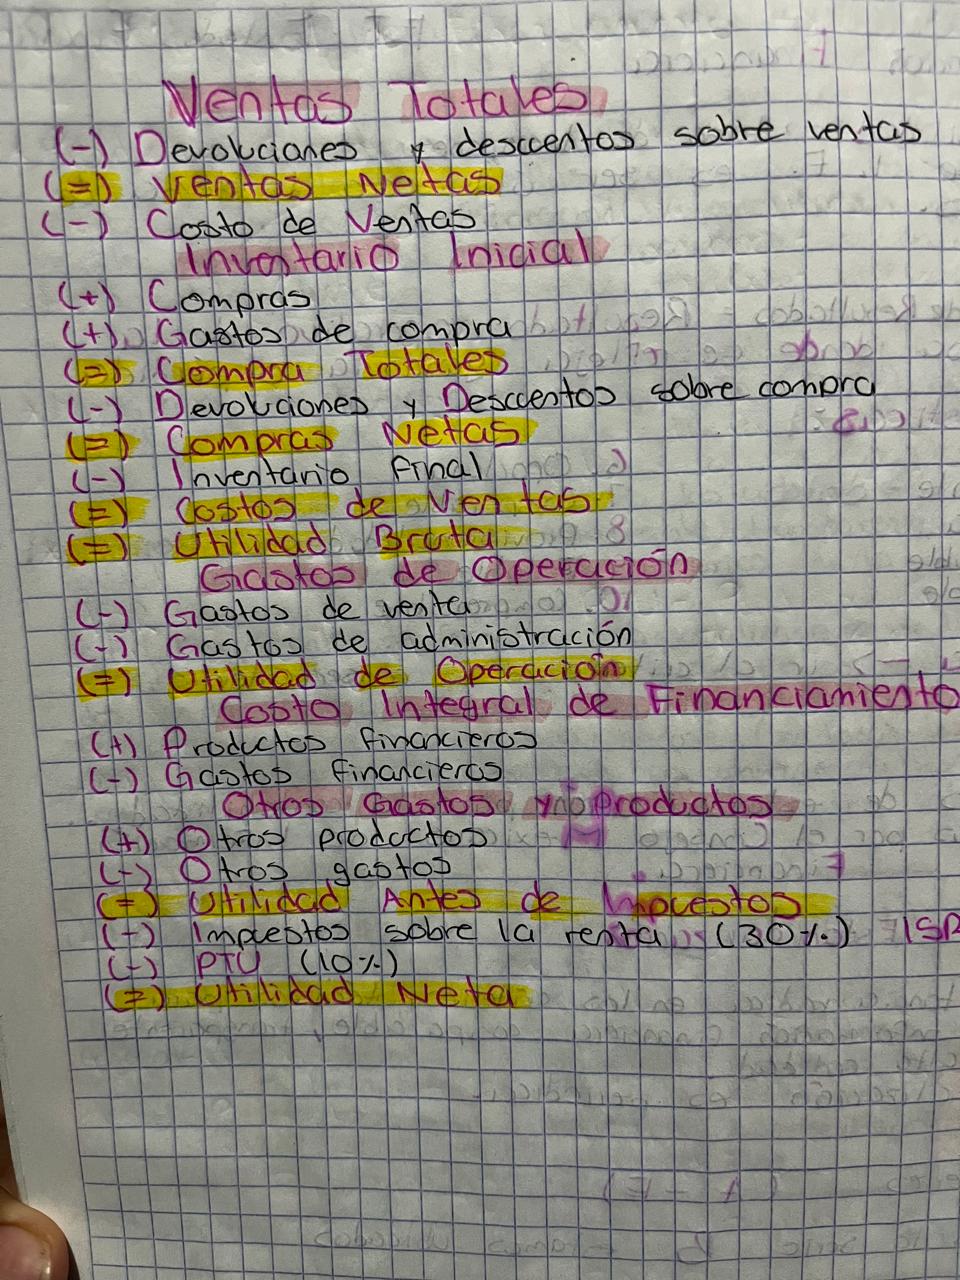 Ventas Totales
(-) Devoluciones y descuentos sobre ventas
(=) Ventas Netas
(-) Costo de Ventas
Inventario Inicial
(+) Compras
(+) Gastos de compra
(=) Compra Totales
(-) Devoluciones y Descuentos sobre compra
(=) Compras Netas
(-) Inventario final
(=) Costos de Ventas
(=) Utilidad Bruta
Gastos de Operación
(-) Gastos de venta
(-) Gastos de administración
(=) Utilidad de Operación
Costo Integral de Financiamiento
(+) Productos financieros
(-) Gastos financieros
Otros Gastos y productos
(+) Otros productos
(-) Otros gastos
(=) Utilidad Antes de Impuestos
(-) Impuestos sobre la renta (30%) ISR
(-) PTU (10%)
(=) Utilidad Neta